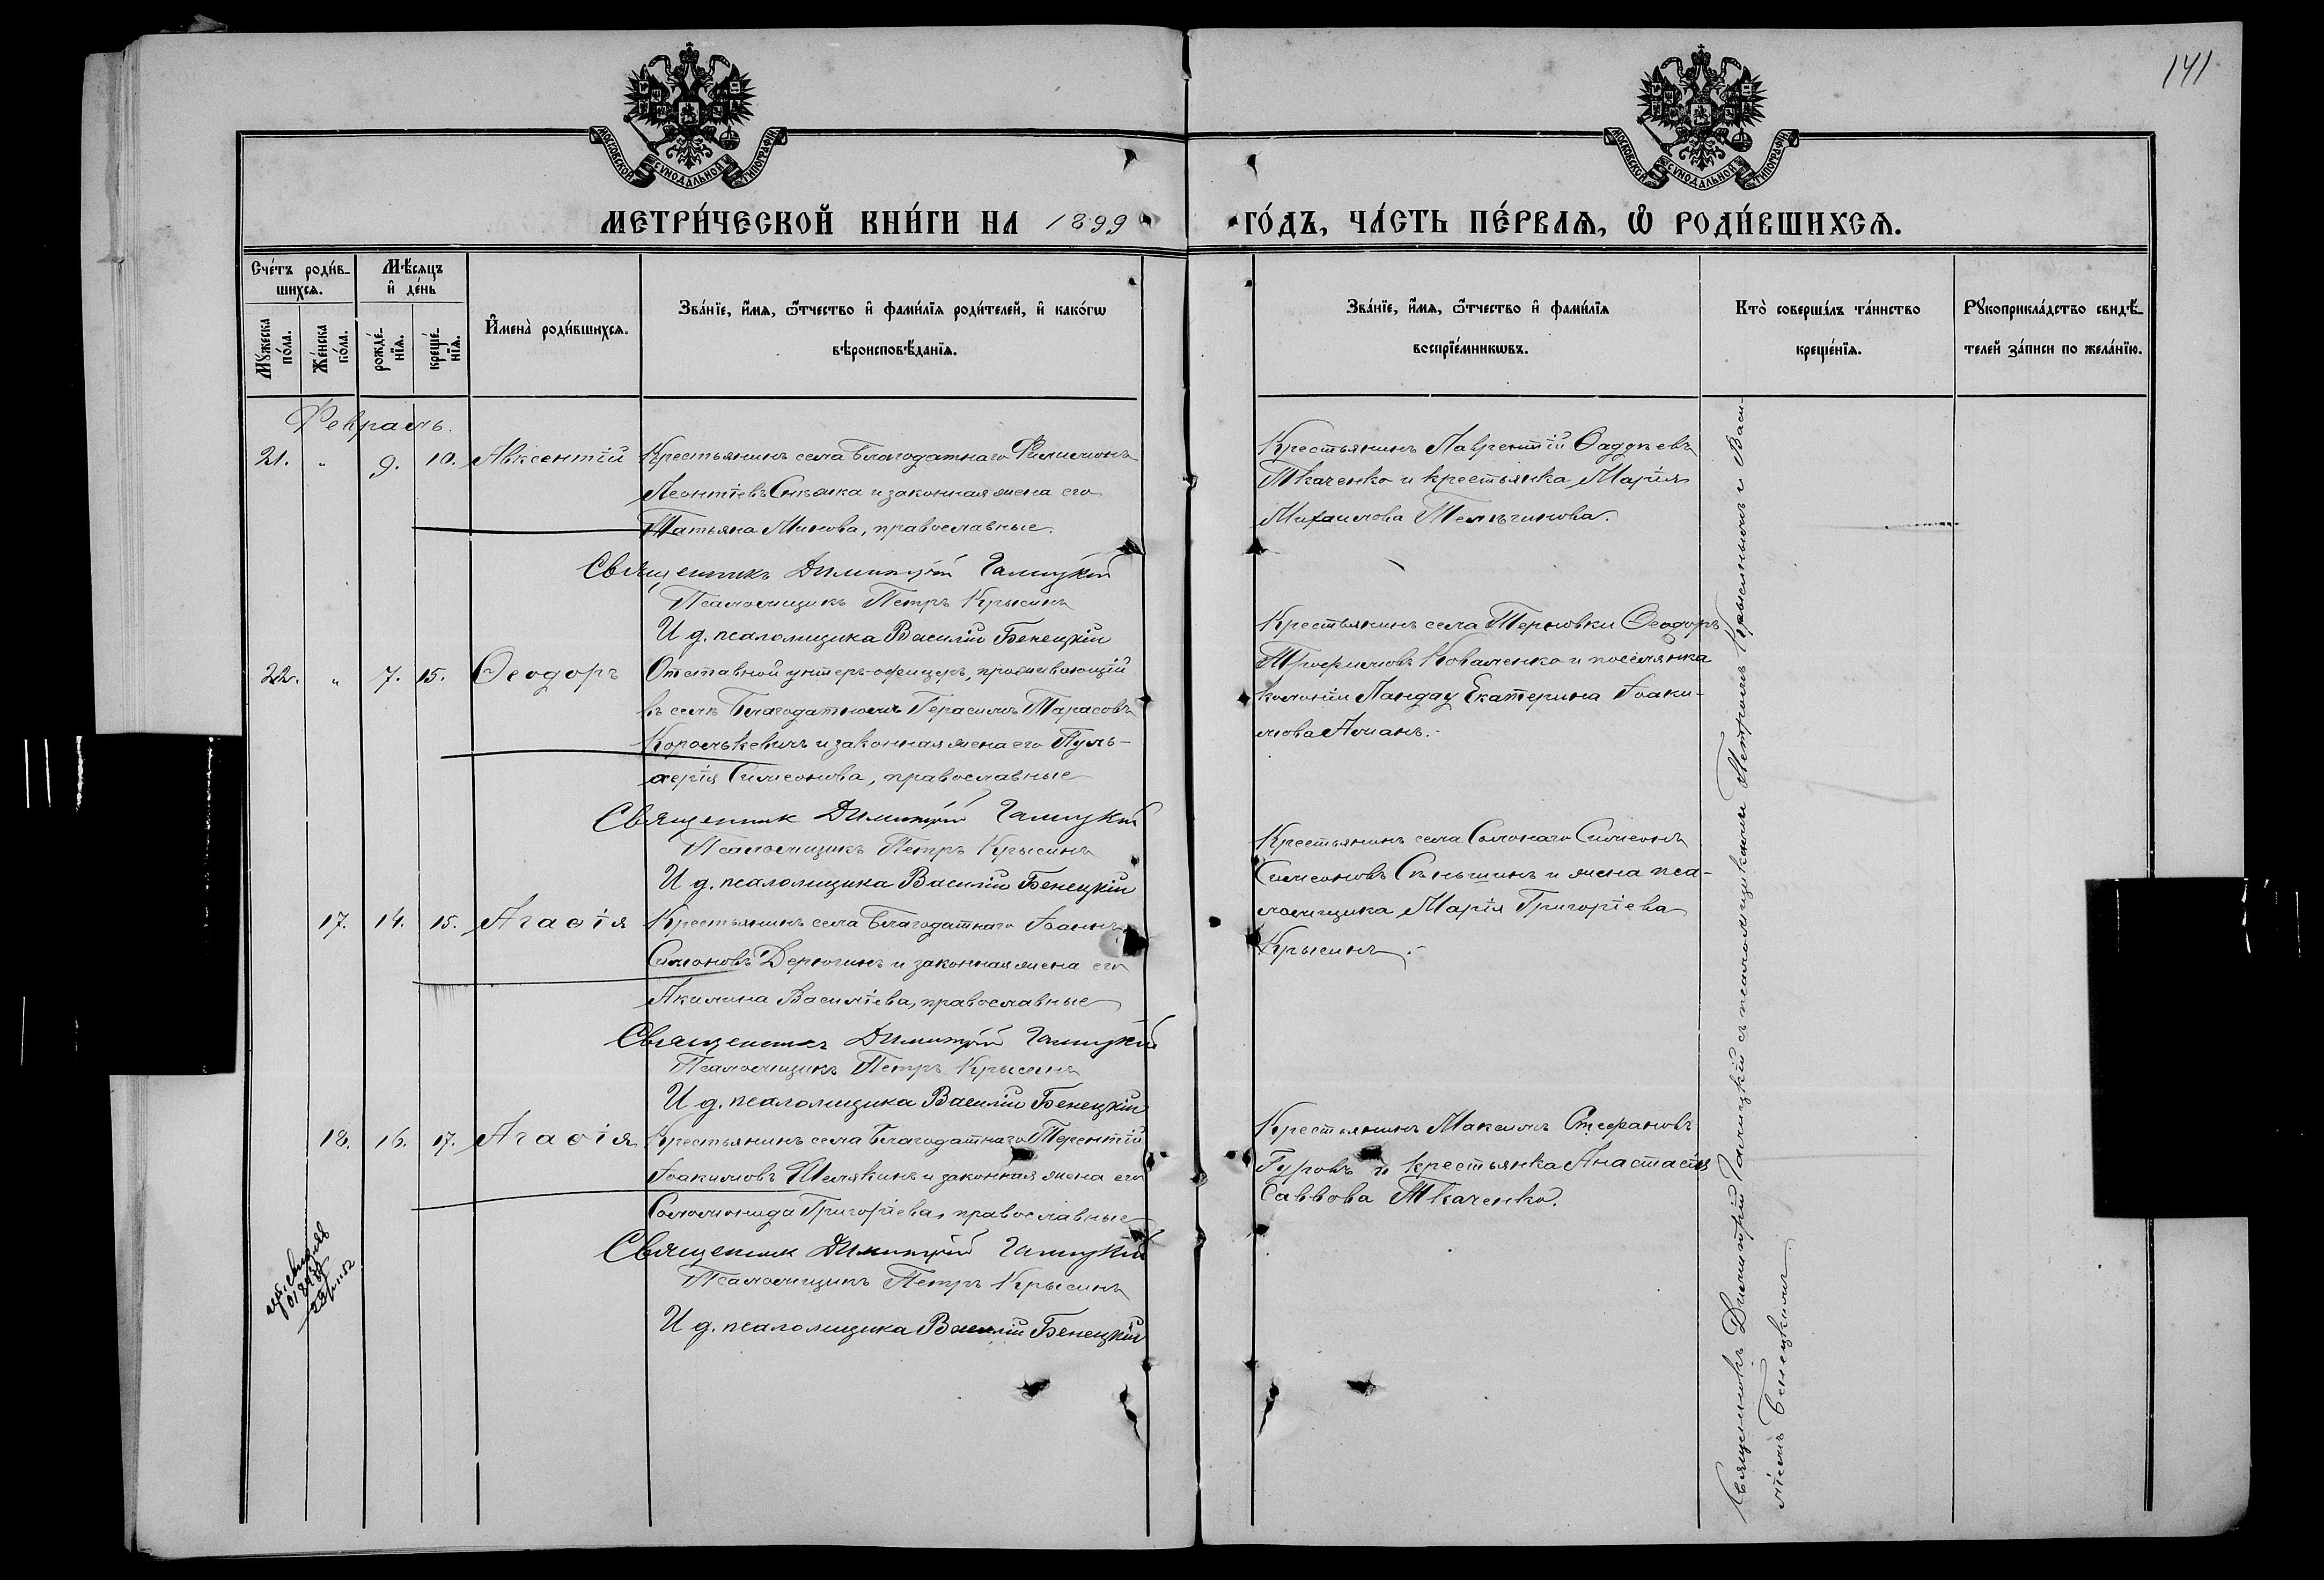 141
МОСКОВСКОЙ СѴНОДАЛЬНОЙ ТИПОГРАФІИ
МОСКОВСКОЙ СѴНОДАЛЬНОЙ ТИПОГРАФІИ
МЕТРИ́ЧЕСКОЙ КНИ́ГИ НА 1899
ГО́ДЪ, ЧА́СТЬ ПЕ́РВАѦ, Ѡ҆ РОДИ́ВШИХСѦ.
Сче́тъ роди́в-
шихсѧ.
Мѣ́сѧцъ
и҆ де́нь
Мꙋ́жеска
по́ла.
Же́нска
по́ла.
рожде́-
нїѧ.
креще́-
нїѧ.
И҆мена̀ роди́вшихсѧ.
Зва́нїе, и҆́мѧ, ѻ҆́тчество и҆ фами́лїѧ роди́телей, и҆ како́гѡ
вѣроисповѣ́данїѧ.
Зва́нїе, и҆́мѧ, ѻ҆́тчество и҆ фами́лїѧ
воспрїе́мникѡвъ.
Кто̀ соверша́лъ та́инство
креще́нїѧ.
Рꙋкоприкла́дство свидѣ́-
телей за́писи по жела́нїю.
Февраль.
21. " 9. 10. Авксентій Крестьянинъ села Благодатнаго Филимонъ
Леонтіевъ и законная жена его
Татьяна Минова, православные.
Священникъ Димитрій Галицкій
Псаломщикъ Петръ Крысинъ
И д. псаломщика Василій Бенецкій
Крестьянинъ Лаврентій Фаддѣевъ
Ткаченко и крестьянка Марія
Михаилова
22. " 7. 15. Ѳеодоръ Отставной унтеръ-офицеръ, проживающій
въ селѣ Благодатномъ Герасимъ Тарасовъ
Королькевичъ и законная жена его Пуль-
херія Симеонова, православные
Священник Димитрій Галицкій
Псаломщикъ Петръ Крысинъ
И д. псаломщика Василій Бенецкій
Крестьянинъ села Терновки Ѳеодоръ
Трофимовъ Коваленко и поселянка
колоніи Ландау Екатерина Іоаки-
мова
17. 14. 15. Агаѳія Крестьянинъ села Благодатнаго Іоаннъ
Симоновъ Дерюгинъ и законная жена его
Акилина Василіева, православные
Священникъ Димитрій Галицкій
Псаломщикъ Петръ Крысинъ
И д. псаломщика Василій Бенецкій
Крестьянинъ села Солонаго Симеонъ
Симеоновъ и жена пса-
ломщика Марія Григоріева
Крысина.
18. 16. 17. Агаѳія Крестьянинъ села Благодатнаго Терентій
Іоакимовъ Шелякинъ и законная жена его
Соломонида Григоріева, православные
Священник Димитрій Галицкій
Псаломщикъ Петръ Крысинъ
И д. псаломщика Василій Бенецкій
Крестьянинъ Максимъ Стефановъ
Гуровъ и крестьянка Анастасія
Саввова Ткаченко.
Священникъ Димитрій Галицкій съ псаломщиками Петромъ Крысинымъ и Васи-
ліемъ Бенецкимъ